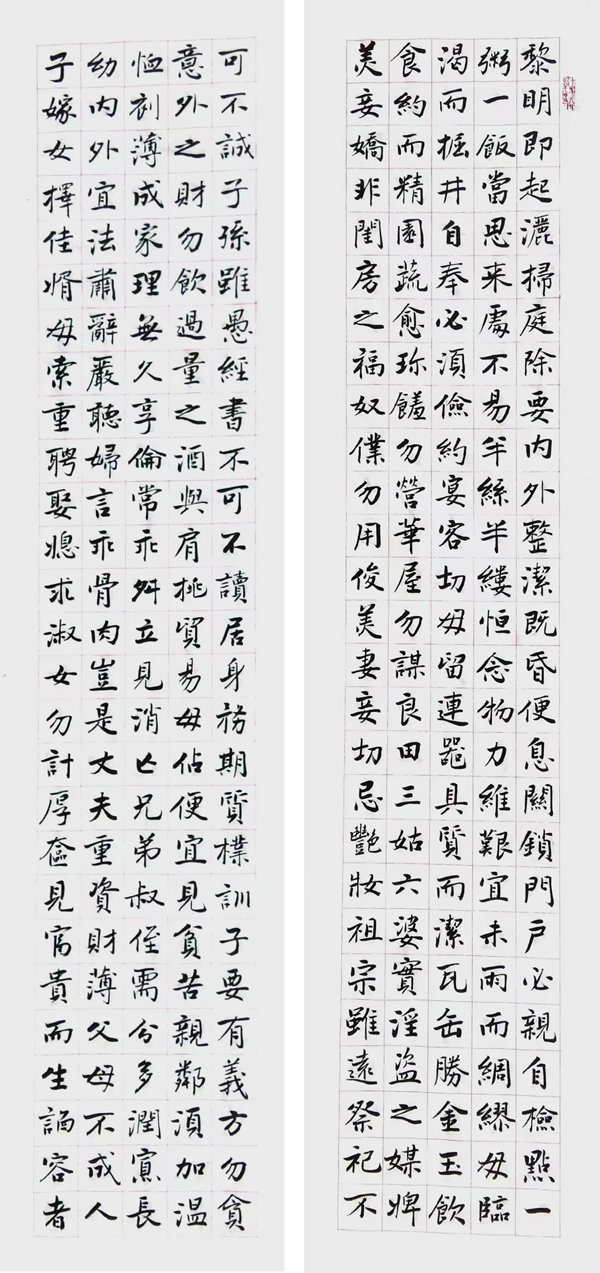 黎明即起灑掃庭除要内外整潔既昏便息關鎖門戶必親自檢點一
粥一飯當思来處不易半絲半縷恒念物力維艱宜未雨而綢繆毋臨
渴而掘井自奉必須儉約宴客切毋留連器具質而潔瓦缶勝金玉飲
食約而精園蔬愈珍饈勿營華屋勿謀良田三姑六婆實淫盜之媒婢
美妾嬌非閨房之福奴僕勿用俊美妻妾切忌豔妝祖宗雖遠祭祀不
可不誠子孫雖愚經書不可不讀居身務期質樸訓子要有義方勿貪
意外之財勿飲過量之酒與肩挑貿易毋佔便宜見貧苦親鄰須加温
恤刻薄成家理無久享倫常乖舛立見消亡兄弟叔侄需分多潤寡長
幼内外宜法肅辭嚴聽婦言乖骨肉豈是丈夫重資財薄父母不成人
子嫁女擇佳婿毋索重聘娶媳求淑女勿計厚奩見富貴而生諂容者